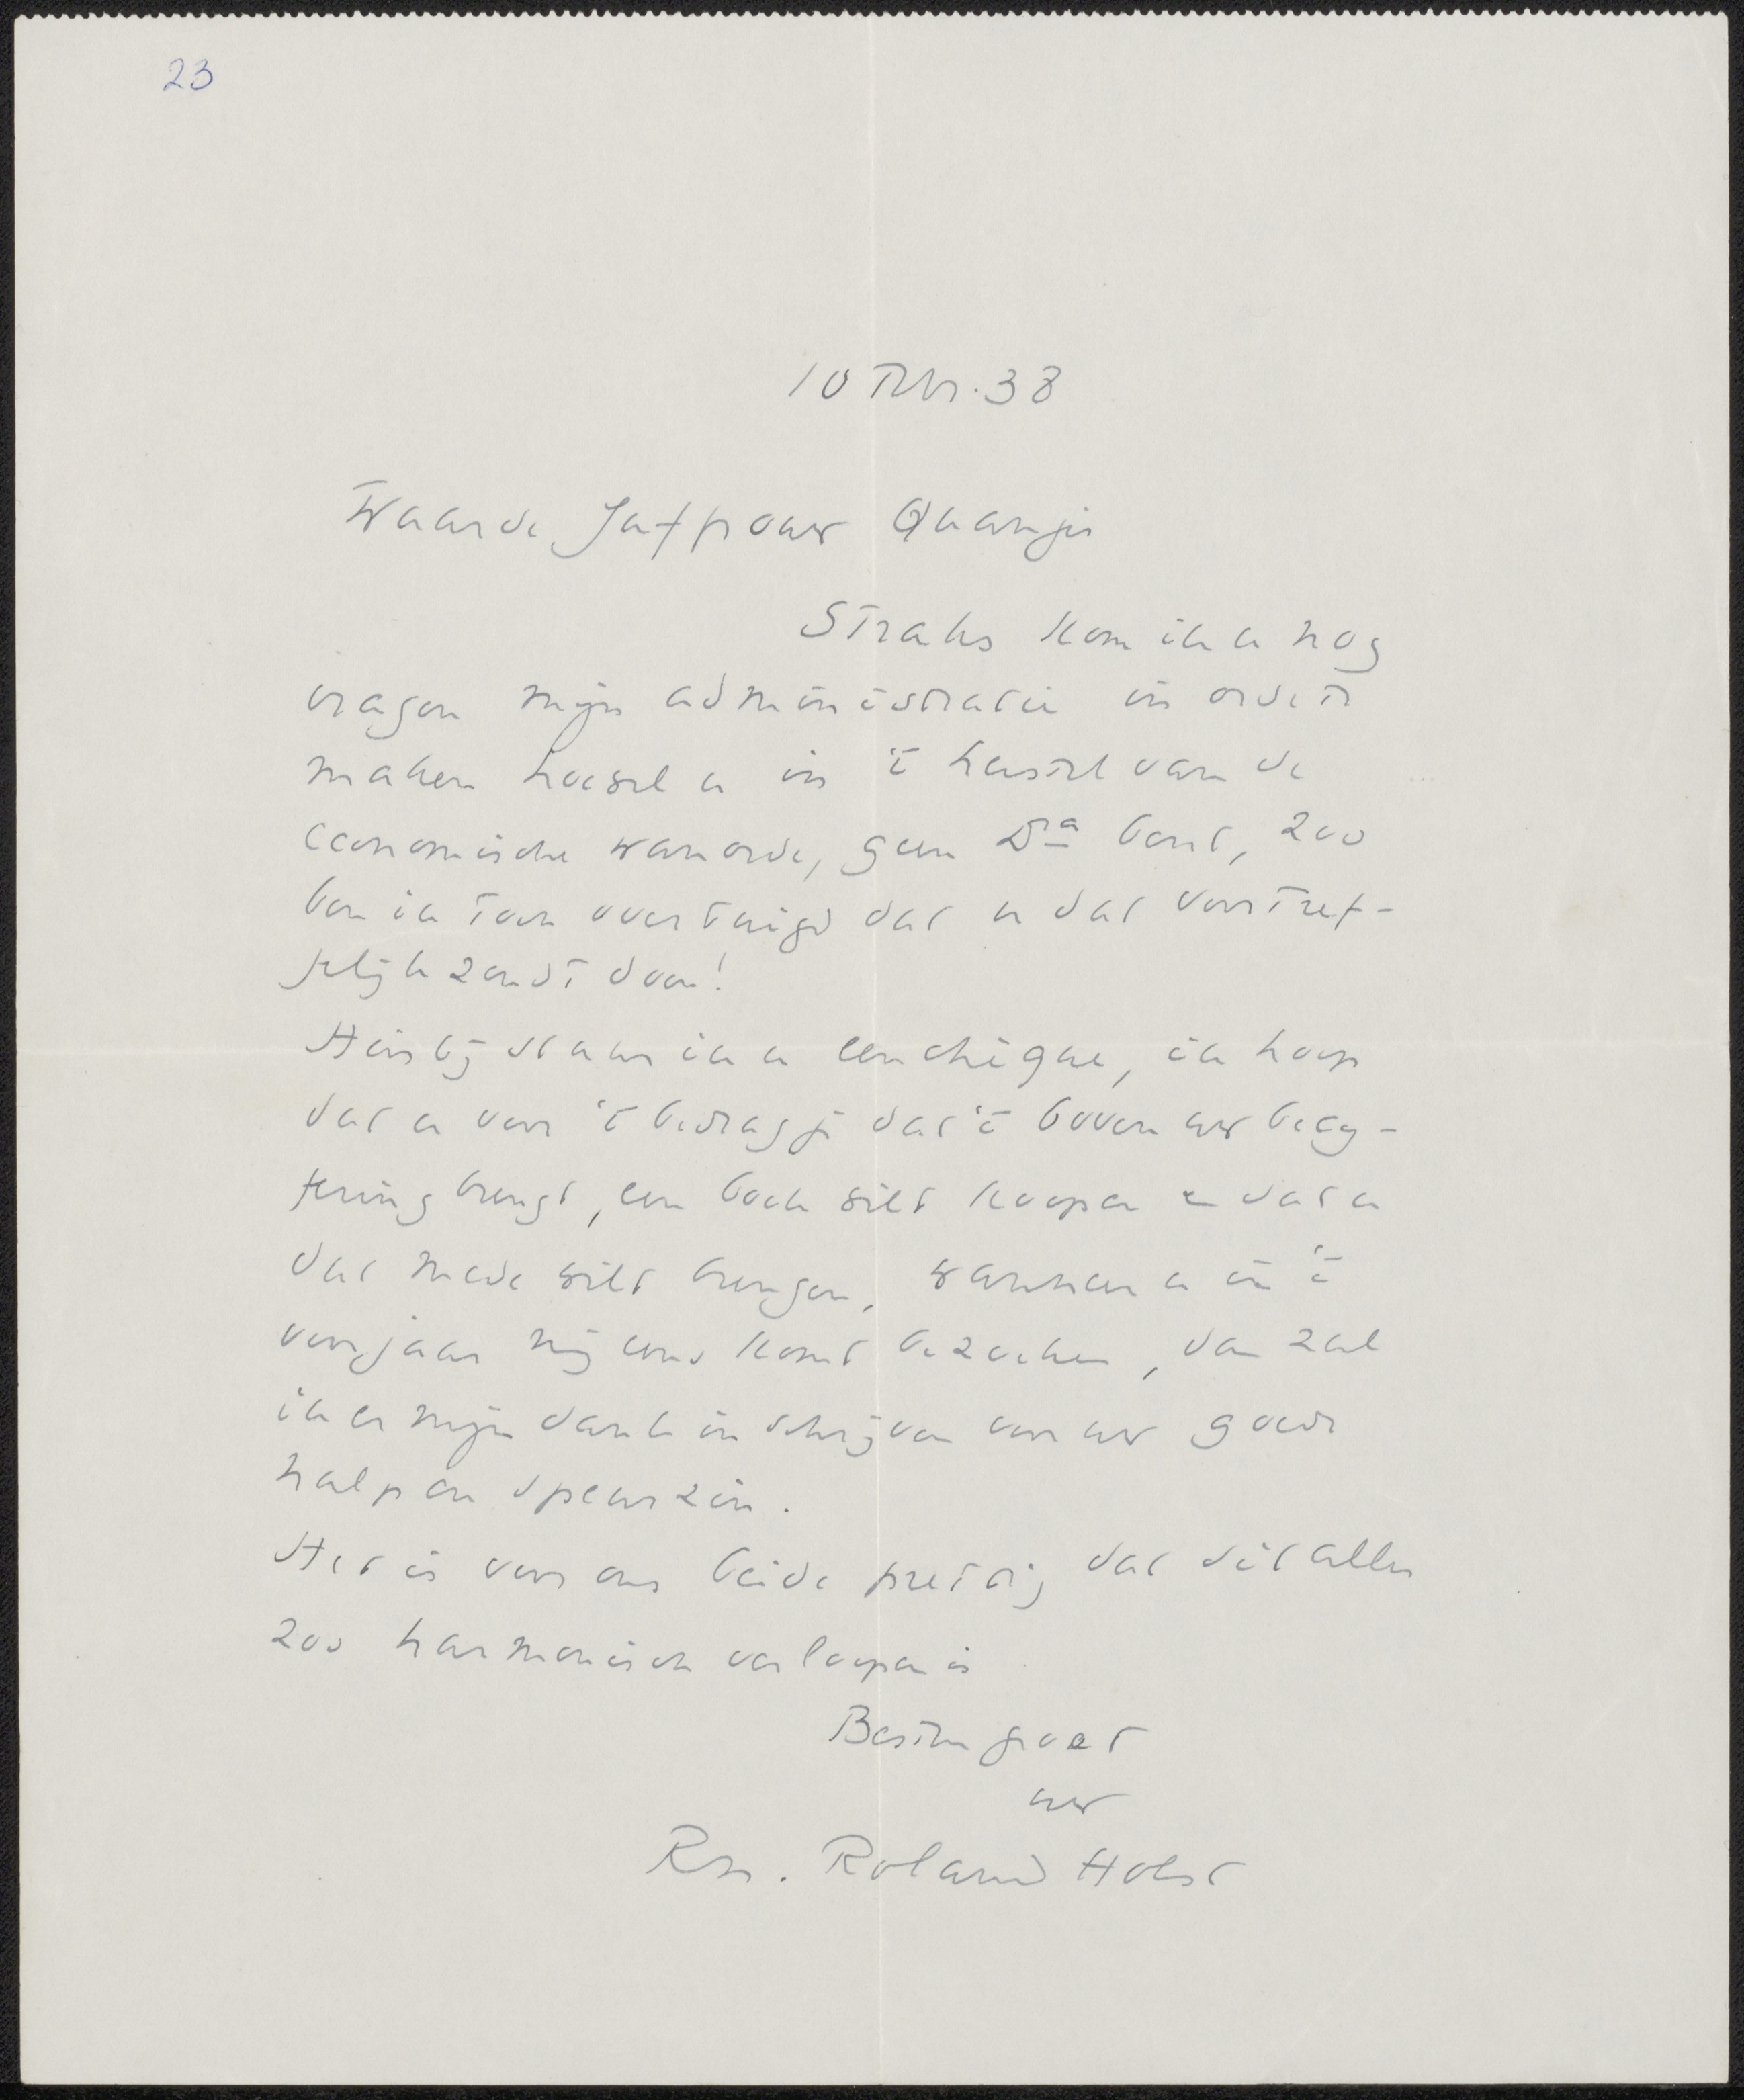 23
10 Febr. 38
Waarde Juffrouw Quanjer
Straks kom ik u nog
vragen mijn administratie in orde te
maken hoewel u in 't herstel van de
economische wanorde, geen Dra bent, zoo
ben ik toch overtuigd dat u dat voortref-
felijk zoudt doen!
Hierbij stuur ik u een chèque, ik hoop
dat u voor 't bedragje dat 't boven uw becij-
fering brengt, een boek wilt koopen en dat u
dat mede wilt brengen, wanneer u in 't
voorjaar mij eens komt bezoeken, dan zal
ik er mijn dank in schrijven voor uw goede
hulp en speurzin.
Het is voor ons beide prettig dat dit alles
zoo harmonisch verloopen is
Besten groet
uw
RN. Roland Holst